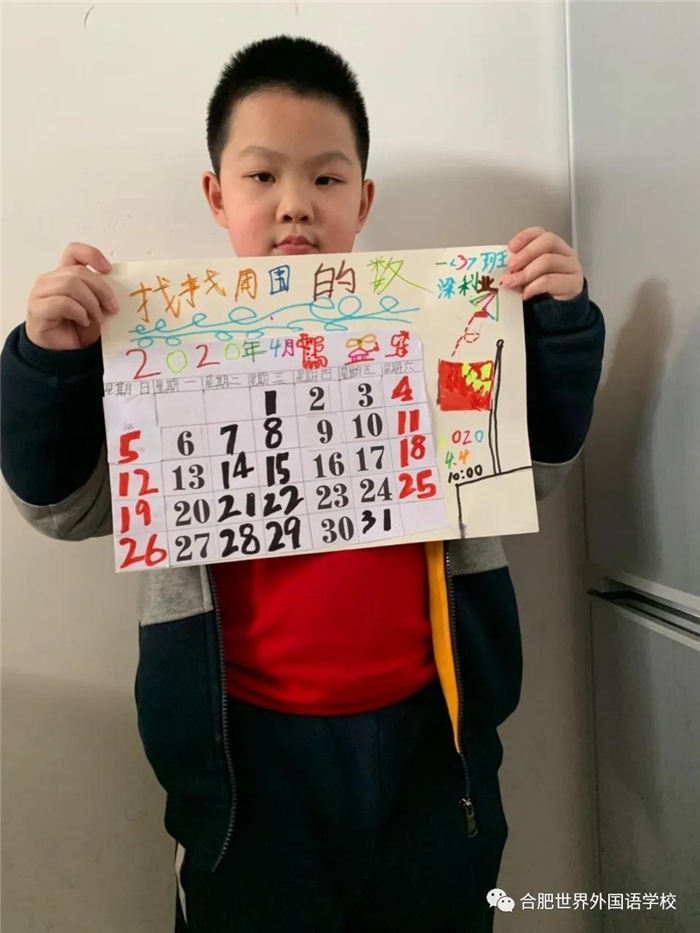 找找周围的数
一<3>班
2020年4月
星期日 星期一 星期二 星期三 星期四 星期五 星期六
1 2 3 4
5 6 7 8 9 10 11
12 13 14 15 16 17 18
19 20 21 22 23 24 25
26 27 28 29 30 31
020
4.4
10:00
合肥世界外国语学校